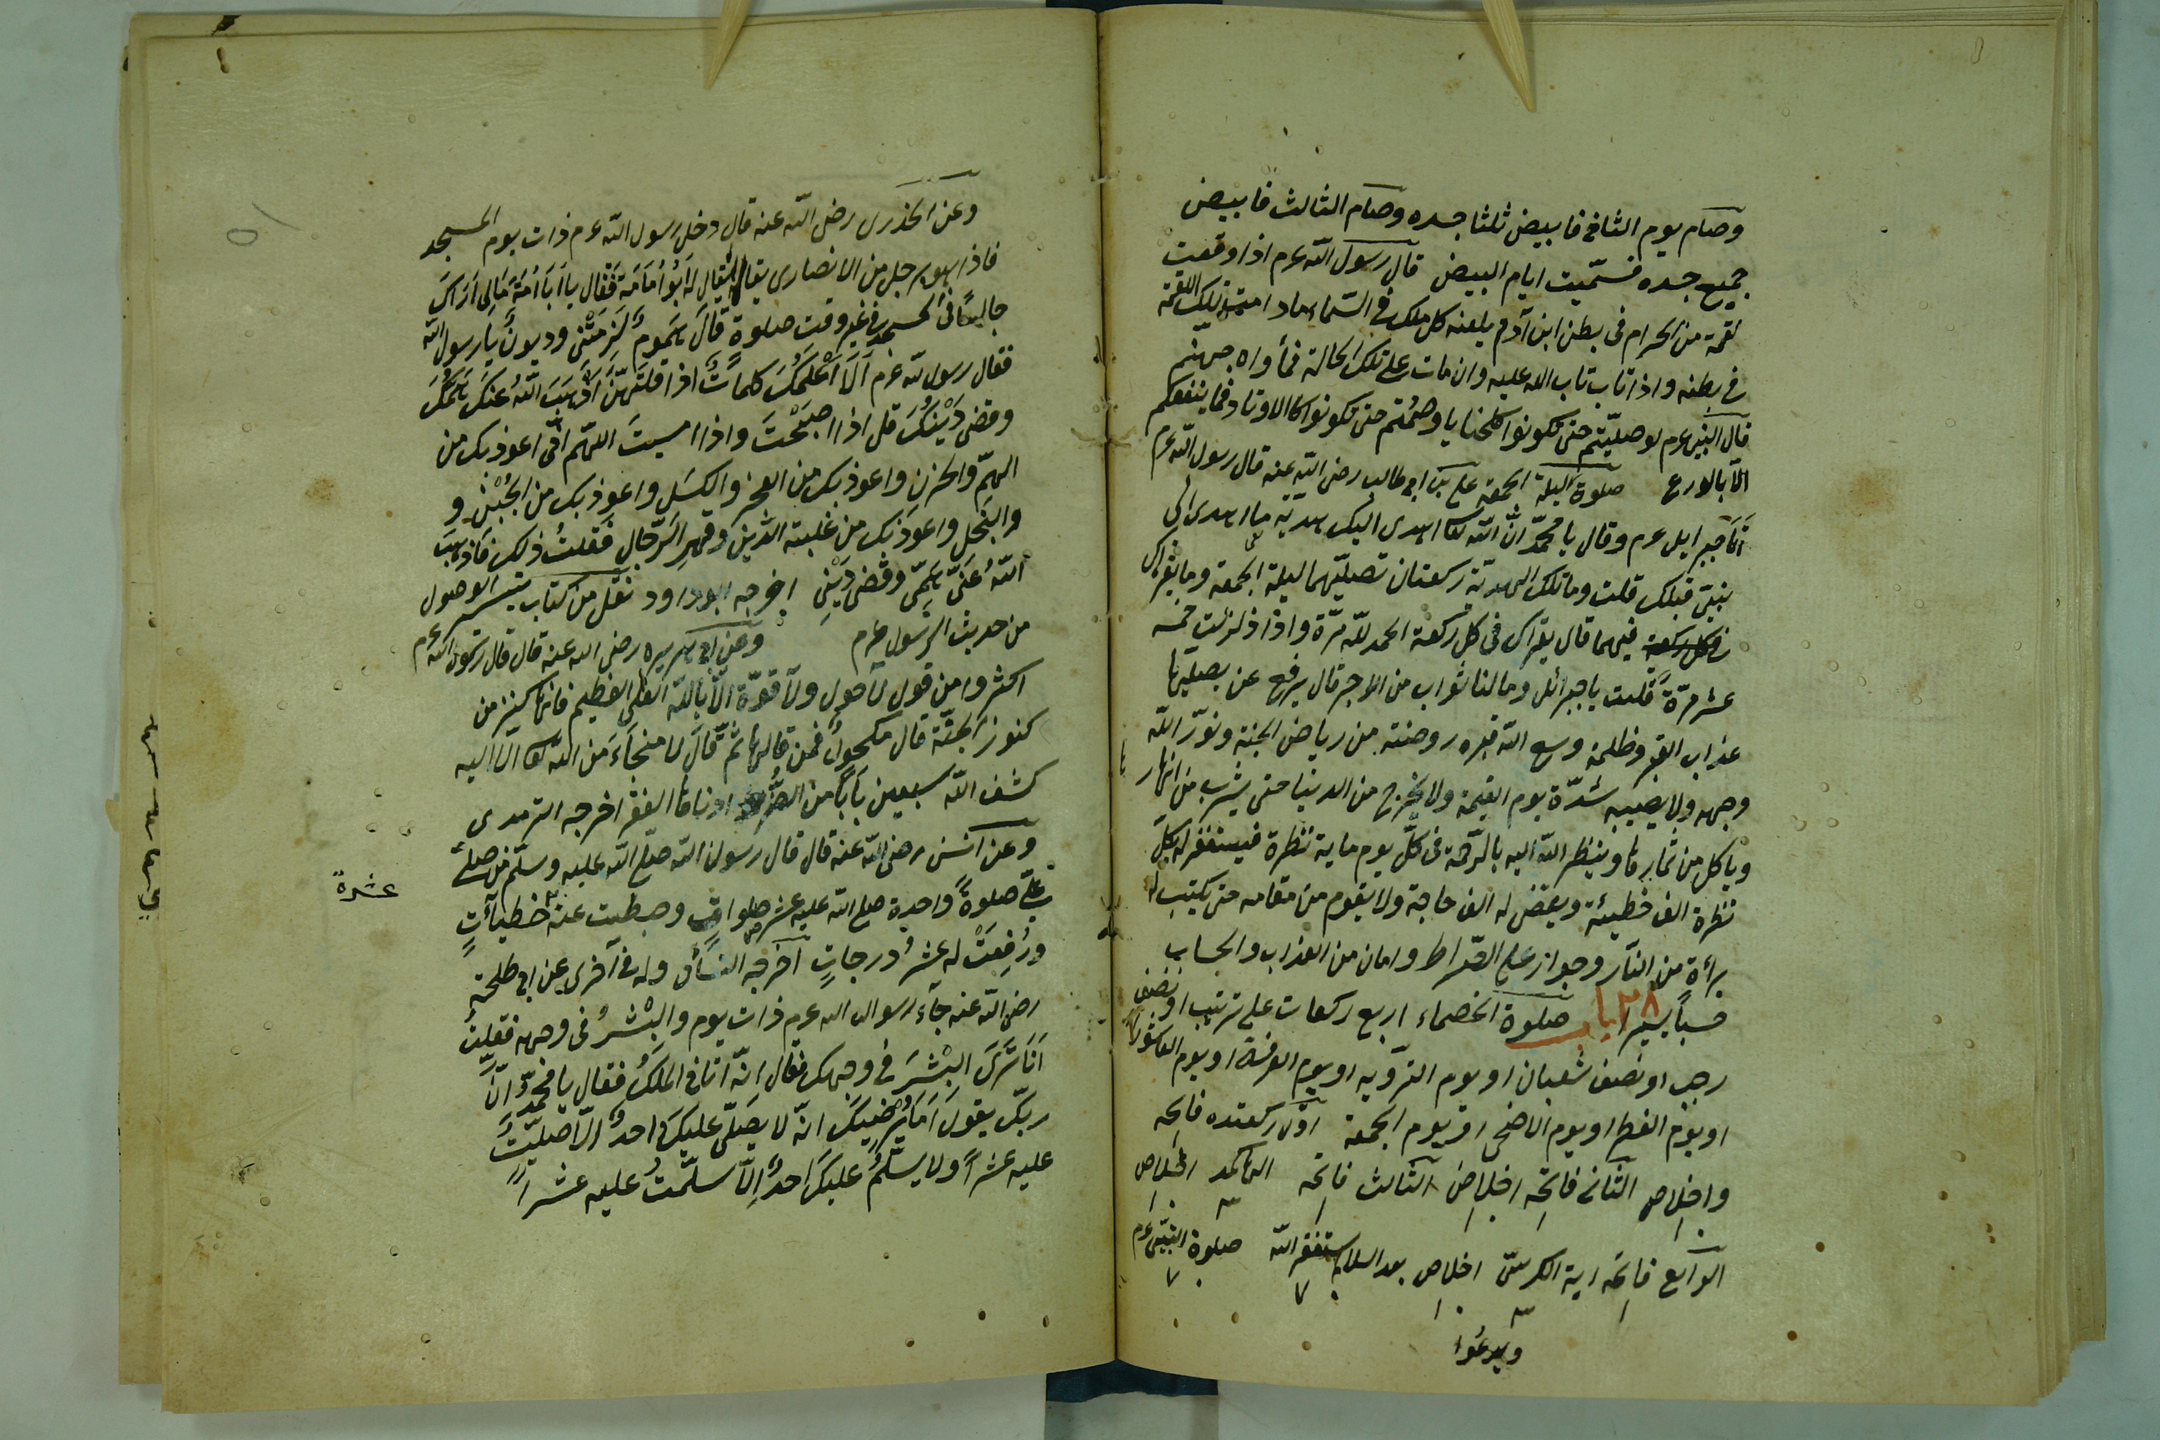 وصام يوم الثانى فابيض ثلثا جسده وصام الثالث فابيض
جميع جسده فسميت ايام البيض قال رسول الله عرم اذا وقعت
لقمة من الحرام فى بطن ابن آدم يلعنه كل ملك فى السماء مادامت تلك اللقمة
فى بطنه واذا تاب تاب الله عليه وان مات على تلك الحالة فمأواه جهنم
قال النبى عرم لو صليتم حتى تكونوا كالحنايا وصمتم حتى تكونوا كالاوتاد فما ينفعكم
الا بالورع صلوة ليلة الجمعة على بن ابى طالب رضى الله عنه قال رسول الله عرم
أتا جبرايل عرم وقال يا محمد ان الله تعا اهدى اليك هدية ما اهدى الى
نبى قبلك قلت وما تلك الهدية ركعتان تصليهما ليلة الجمعة وما يقراى
فى كل ركعة فيهما قال يقراى فى كل ركعة الحمد لله مرة واذا زلزلت خمسة
عشر مرة قلت يا جبرائل وما لنا ثواب من الاجر قال يرفع عن يصليها
عذاب القبر وظلمة وسع الله قبره روضة من رياض الجنة ونور الله
وجهه ولا يصيبه شدة يوم القيمة ولا يخرج من الدنيا حتى يشرب من انهارها
وياكل من ثمارها وينظر الله اليه بالرحمة فى كل يوم ماية نظرة فيستغفر له بكل
نظرة الف خطيئة ويقض له الف حاجة ولا يقوم من مقامه حتى يكتب له
براءة من النار وجواز على الصراط وامان من العذاب والحساب
حساباً يسيرا ٢٨ باب صلوة الخصماء اربع ركعات على ترتيب او نصف
رجب او نصف شعبان او يوم التروية او يوم العرفة او يوم العاشورا
او يوم الفطر او يوم الاضحى او يوم الجمعة اول ركعتده فاتحه
واخلاص الثانى فاتحه اخلاص الثالث فاتحه الهاكم اخلاص
الرابع فاتحه اية الكرسى اخلاص بعد السلام استغفر الله صلوة النبى عرم
ويدعوا
وعن الخدرى رضى الله عنه قال دخل رسول الله عرم ذات يوم المسجد
فاذا هو برجل من الانصارى يقال له ابو أمامة فقال يا ابا أمامة مالى اراك
جالساً فى المسجد فى غير وقت صلوة قال هموم لزمتنى وديون يا رسول الله
فقال رسول لله عرم ألا أعلمك كلمات اذا قلتهن اذهب الله عنك همك
وقضى دينك قل اذا اصبحت واذا امسيت اللهم انى اعوذ بك من
الهم والحزن واعوذ بك من العجز والكسل واعوذ بك من الجبن و
والبخل واعوذ بك من غلبة الدين وقهر الرجال فقلت ذلك فاذهب
الله عنى همى وقضى دينى اخرجه ابو داود نقل من كتاب تيسير الوصول
من حديث الرسول عرم وعن ابى هريره رضى الله عنه قال قال رسول الله عرم
اكثروا من قول لا حول ولا قوة الا بالله العلى العظيم فانها كنز من
كنوز الجنة قال مكحول فمن قالها ثم قال لا منجاء من الله تعا الا اليه
كشف الله سبعين باباً من الضر ادناها الفقر اخرجه الترمدى
وعن انس رضى الله عنه قال قال رسول الله صلى الله عليه وسلم من صلى
على صلوة واحدة صلى الله عليه عشر صلوات وحطيت عنه خطيآت
عشرة
ورفعت له عشر درجات آخرجه النسأى وله فى آخرى عن ابى طلحة
رضى الله عنه جآء رسوال الله عرم ذات يوم والبشر فى وجهه فقلت
انا نرى البشر فى وجهك فقال انه اتانى الملك فقال يا محمد ان
ربك يقول اما يرضيك انه لا يصلى عليك احد الا صليت
عليه عشراً ولا يسلم عليك احد الا سلمت عليه عشراً